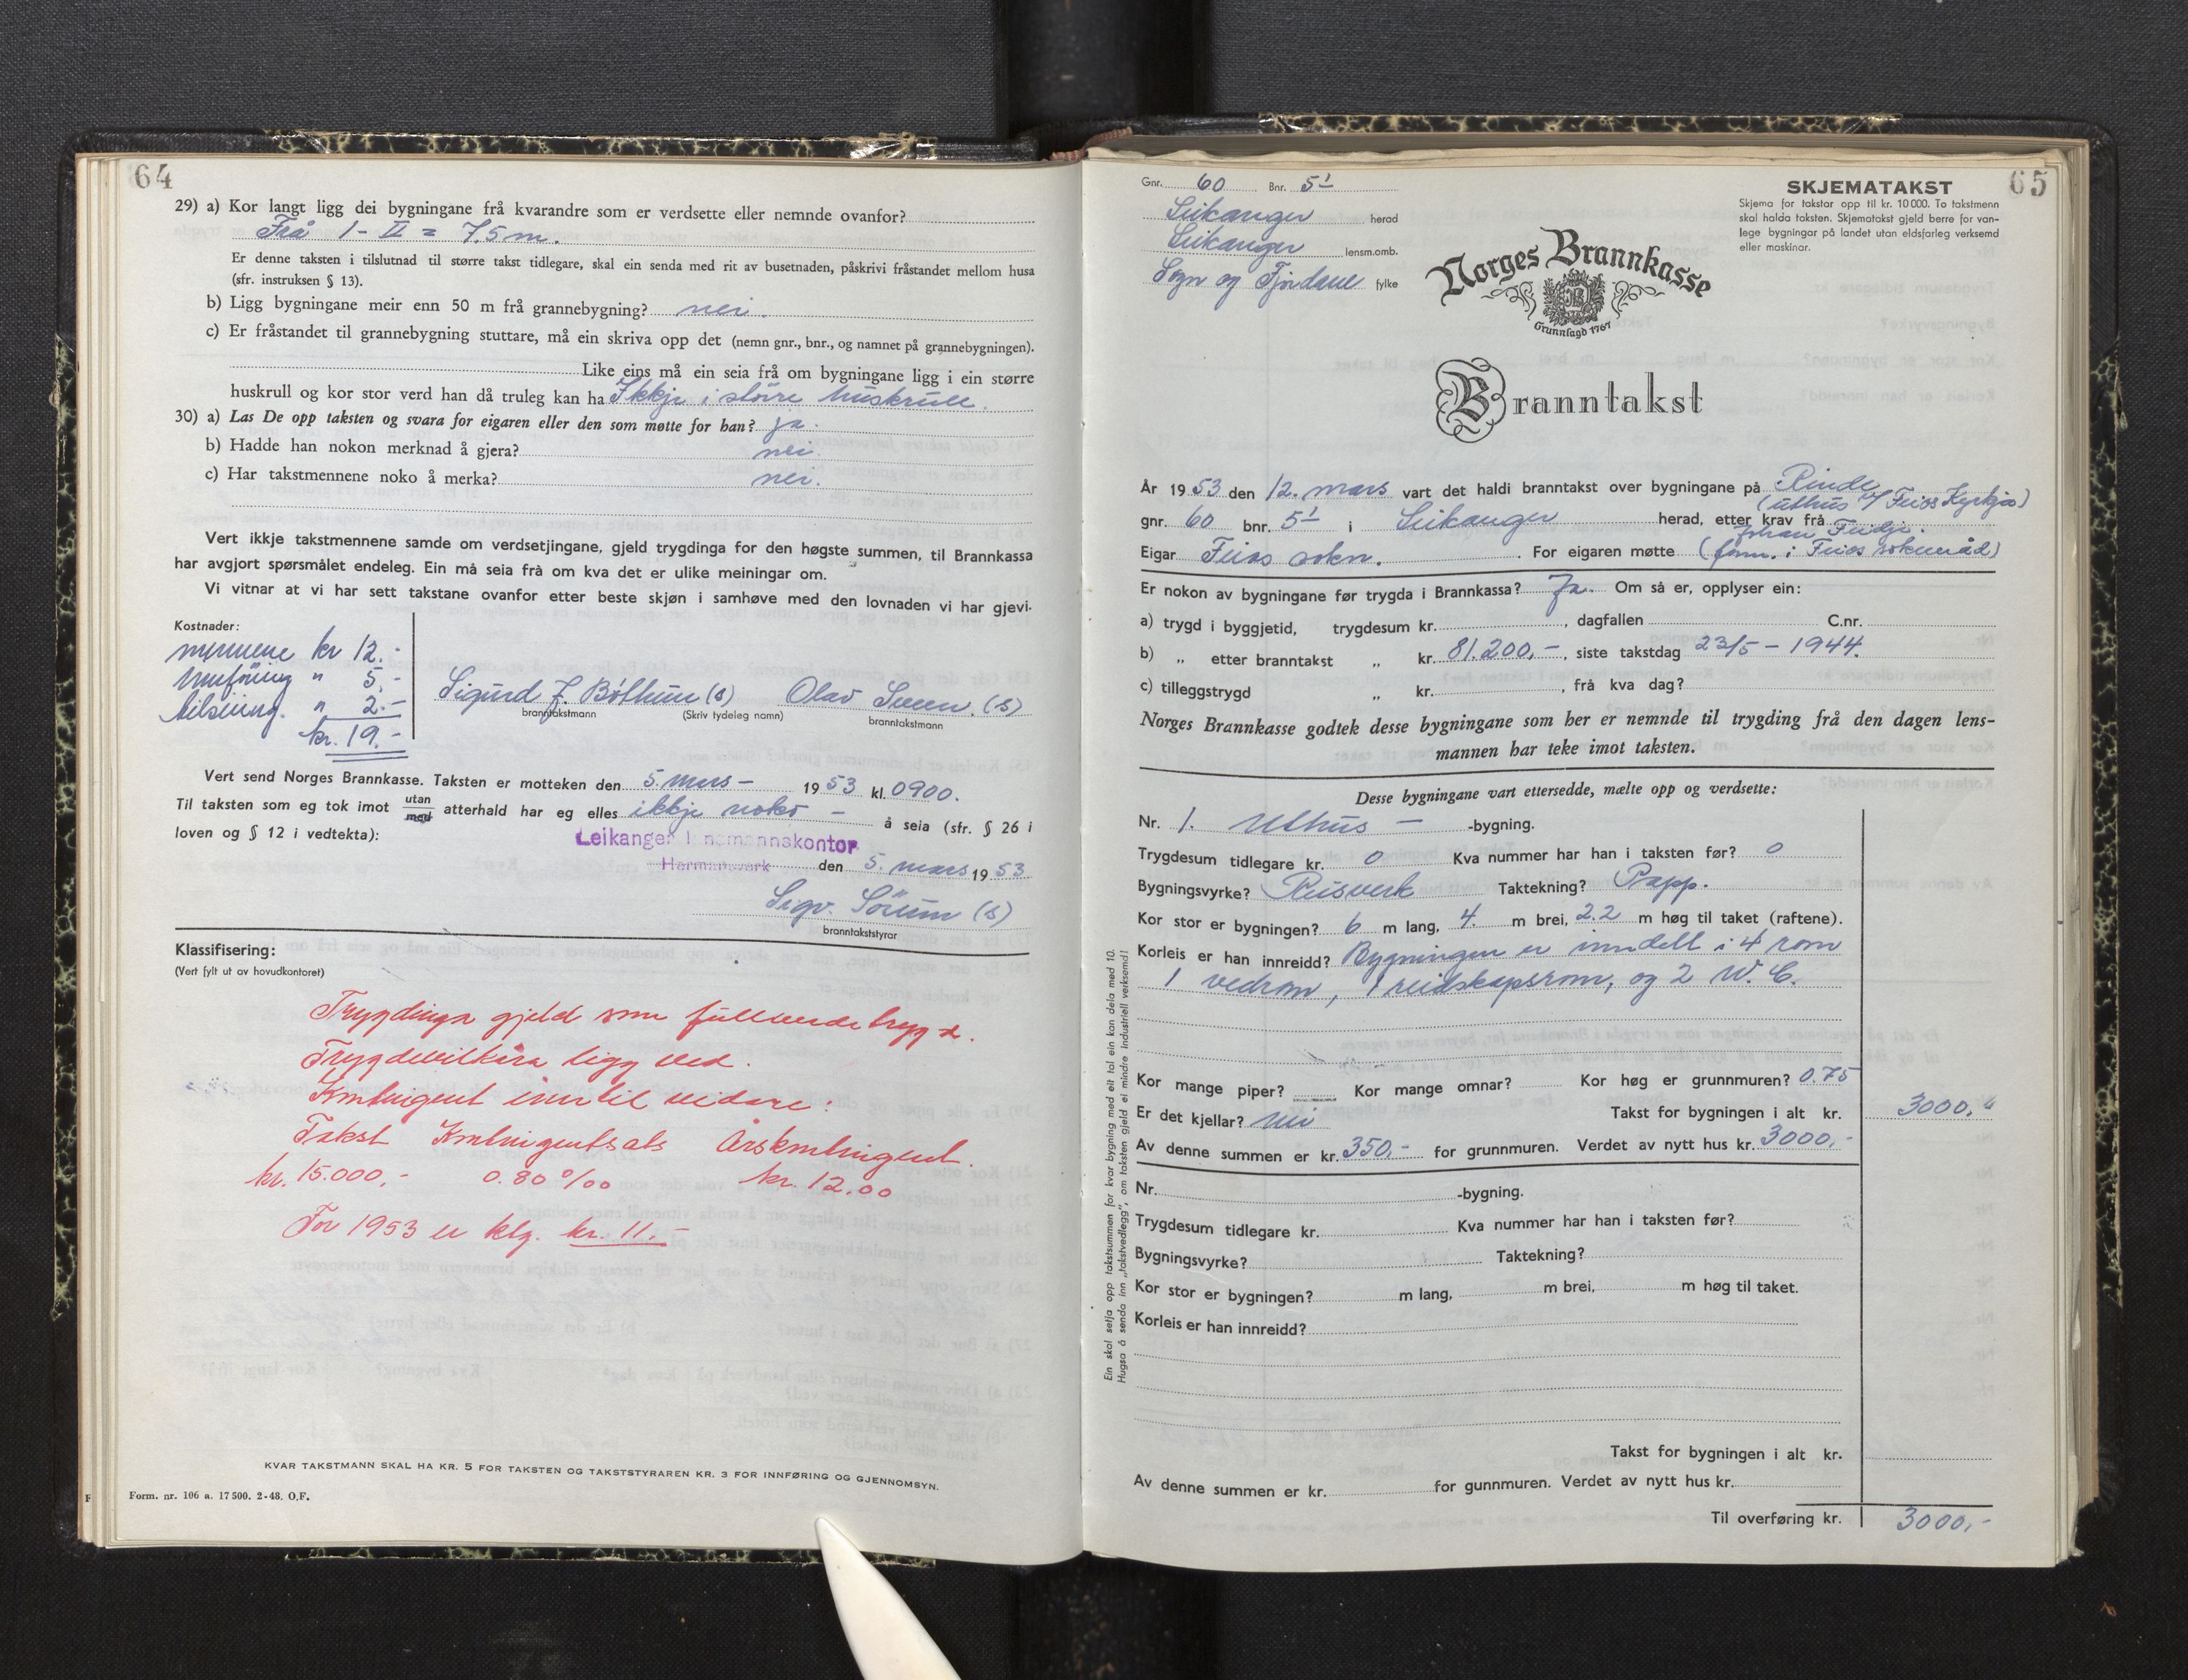 64
29) a) Kor langt ligg dei bygningane frå kvarandre som er verdsette eller nemnde ovanfor?
Frå I - II = 75 m.
Er denne taksten i tilslutnad til større takst tidlegare, skal ein senda med rit av busetnaden, påskrivi fråstandet mellom husa
(sfr. instruksen § 13).
b) Ligg bygningane meir enn 50 m frå grannebygning? nei.
c) Er fråstandet til grannebygning stuttare, må ein skriva opp det (nemn gnr., bnr., og namnet på grannebygningen).
Like eins må ein seia frå om bygningane ligg i ein større
huskrull og kor stor verd han då truleg kan ha Ikkje i större huskrull.
30) a) Las De opp taksten og svara for eigaren eller den som møtte for han? ja.
b) Hadde han nokon merknad å gjera? nei.
c) Har takstmennene noko å merka? nei.
Vert ikkje takstmennene samde om verdsetjingane, gjeld trygdinga for den høgste summen, til Brannkassa
har avgjort spørsmålet endeleg. Ein må seia frå om kva det er ulike meiningar om.
Vi vitnar at vi har sett takstane ovanfor etter beste skjøn i samhøve med den lovnaden vi har gjevi.
Kostnader:
mennene kr 12.-
Innföring " 5.-
tilsening. " 2.-
kr. 19.-
Sigurd J. Böthun (s) Olav Sveen. (s)
branntakstmann (Skriv tydeleg namn) branntakstmann
Vert send Norges Brannkasse. Taksten er motteken den 5. mars - 1953 kl. 0900.
Til taksten som eg tok imot utan med atterhald har eg elles ikkje noko - å seia (sfr. § 26 i
loven og § 12 i vedtekta):
Leikanger lensmannskontor
Hermansverk den 5. mars 1953
Sigv. Sörum (s)
branntakststyrar
Klassifisering:
(Vert fylt ut av hovudkontoret)
Trygdinga gjeld som fullverdetrygd.
Trygdevilkåra ligg ved.
Kontingent inntil vidare:
Takst Kontingentsats Årskontingent.
kr. 15.000.- 0.80 ‰ kr. 12.00
For 1953 er btg. kr. 11.-
KVAR TAKSTMANN SKAL HA KR. 5 FOR TAKSTEN OG TAKSTSTYRAREN KR. 3 FOR INNFØRING OG GJENNOMSYN.
Form. nr. 106 a. 17500. 2-48. O.F.
65
Gnr. 60 Bnr. 51
Leikanger herad
Leikanger lensm.omb.
Sogn og Fjordane fylke
SKJEMATAKST
Skjema for takstar opp til kr. 10 000. To takstmenn
skal halda taksten. Skjematakst gjeld berre for van-
lege bygningar på landet utan eldsfarleg verksemd
eller maskinar.
Norges Brannkasse
Grunnlagd 1767
Branntakst
År 1953 den 12. mars vart det haldi branntakst over bygningane på Rinde
(uthus v/ Feios Kyrkja)
gnr. 60 bnr. 51 i Leikanger herad, etter krav frå
Johan Feidje.
Eigar Feios sokn. For eigaren møtte (form. i Feios sokneråd)
Er nokon av bygningane før trygda i Brannkassa? Ja. Om så er, opplyser ein:
a) trygd i byggjetid, trygdesum kr. , dagfallen C.nr.
b) „ etter branntakst „ kr. 81.200,-, siste takstdag 23/5 - 1944.
c) tilleggstrygd „ kr. , frå kva dag?
Norges Brannkasse godtek desse bygningane som her er nemnde til trygding frå den dagen lens-
mannen har teke imot taksten.
Desse bygningane vart ettersedde, mælte opp og verdsette:
Nr. 1. Uthus - -bygning.
Trygdesum tidlegare kr. 0 Kva nummer har han i taksten før? 0
Bygningsvyrke? Reisverk Taktekning? Papp.
Kor stor er bygningen? 6 m lang, 4. m brei, 2.2 m høg til taket (raftene).
Korleis er han innreidd? Bygningen er inndelt i 4 rom
1 vedrom, 1 reidskapsrom, og 2 W.C.
Kor mange piper? Kor mange omnar? Kor høg er grunnmuren? 0.75
Er det kjellar? nei Takst for bygningen i alt kr. 3000,-
Av denne summen er kr. 350,- for grunnmuren. Verdet av nytt hus kr. 3000,-
Nr. -bygning.
Trygdesum tidlegare kr. Kva nummer har han i taksten før?
Bygningsvyrke? Taktekning?
Kor stor er bygningen? m lang, m brei, m høg til taket.
Korleis er han innreidd?
Takst for bygningen i alt kr.
Av denne summen er kr. for gunnmuren. Verdet av nytt hus kr.
Til overføring kr. 3000,-
Ein skal setja opp takstsummen for kvar bygning med eit tal ein kan dela med 10.
Hugsa å senda inn „takstvedlegg", om taksten gjeld ei mindre industriell verksemd!